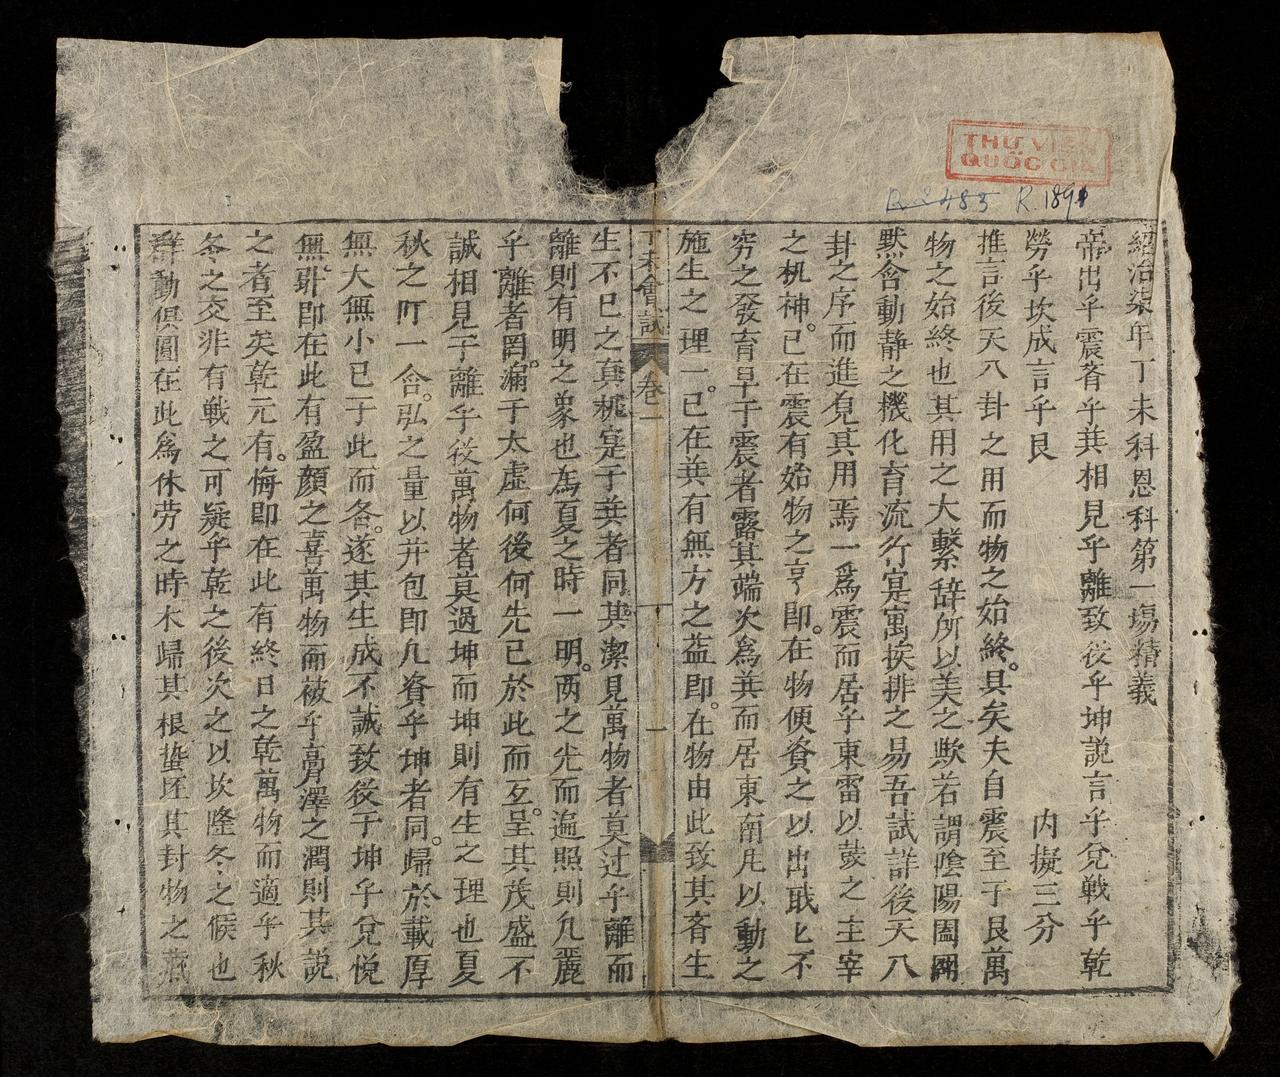 THƯ VIỆN
QUỐC GIA
R 2483 R.1891
紹治柒年丁未科恩科第一場精義
帝出乎震齊乎巽相見乎離致役乎坤説言乎兌戦乎乾
勞乎坎成言乎艮 内擬三分
推言後天八卦之用而物之始終。具矣夫自震至于艮萬
物之始終也其用之大繫辞所以美之欤若謂陰陽闔闢
黙含動静之機化育流行寔寓挨排之易吾試詳後天八
卦之序而進見其用焉一爲震而居乎東雷以鼓之主宰
之机神。已在震有始物之亨即。在物便資之以出耿匕不
穷之發育早于震者露其端次爲巽而居東南凡以動之
施生之理一。已在巽有無方之益即。在物由此致其吝生
丁未會試 卷一 一
生不已之真機寔于巽者同其潔見萬物者莫过乎離而
離則有明之象也為夏之時一明。两之光而遍照則凡麗
乎離者罔。漏于太虛何後何先已於此而互。呈其茂盛不
誠相見于離乎役萬物者莫過坤而坤則有生之理也夏
秋之町一含。弘之量以并包即凡資乎坤者同。歸於載厚
無大無小已于此而各。遂其生成不誠致役于坤乎兌悅
無 即在此有盈顔之喜萬物而被乎膏澤之潤則其説
之者至矣乾元有。悔即在此有終日之乾萬物而適乎秋
冬之交非有戦之可疑乎乾之後次之以坎隆冬之候也
群動俱圓在此爲休劳之時木歸其根蟄坯其封物之蔵